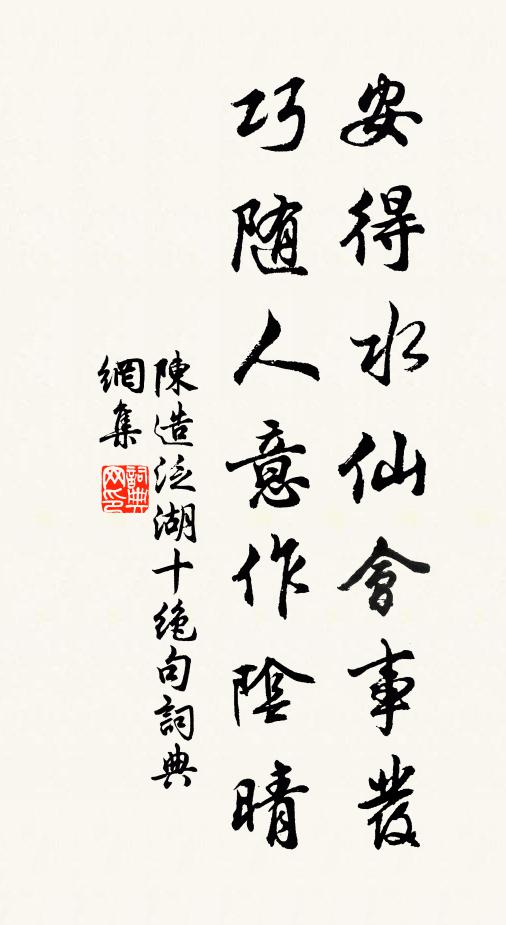 安得水仙會事發
巧随人意作陰晴
陳造泛湖十絶句詞典
網集
詞典
网印